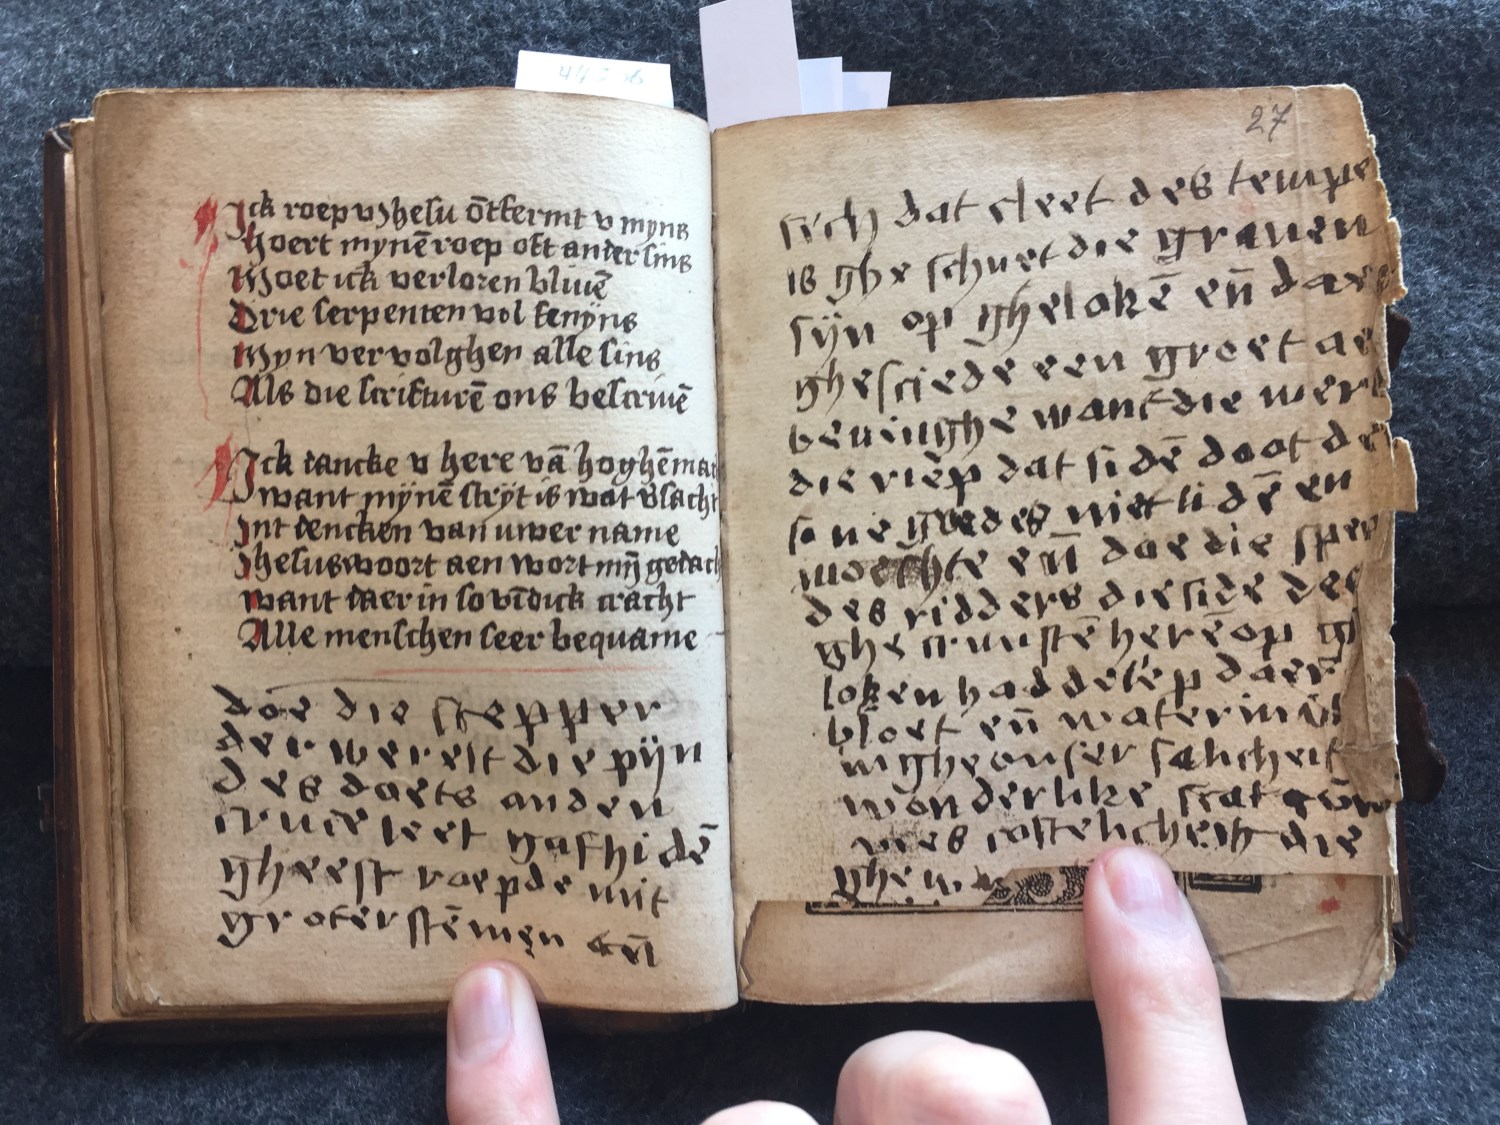 Ick roep v Jhesu ōtfermt v myns
Hoert mynē roep oft ander sins
Moet ick verloren bliuē
Drie serpenten vol fenijns
Myn vervolghen alle sins
Als die scrifturē ons bescriuē
Ick dancke v here vā hoghē mac
want mynē strijt is wat vsacht
Int dencken van uwer name
Jhesus woort aen wort mȳ gedach
want daer in so vīdick cracht
Alle menschen seer bequame
doe die scepper
der werelt die pijn
des doets an den
cruce leet gaf hi dē
gheest roepde mit
groter stēmen eñ
27
sich dat cleet des tempe
is ghe schuert die grauen
sijn op ghelokē eñ daer
ghesciede een groet ae
beuinghe want die werl
die riep dat si dē doot de
so ne goedes niet lidē en
moechte eñ doe die spee
des ridders die side des
ghe cruustē herē op gh
loken hadde liep daer
bloet eñ water in
inghe onser salicheit
wonderlike scat
costelicheit die
ghe